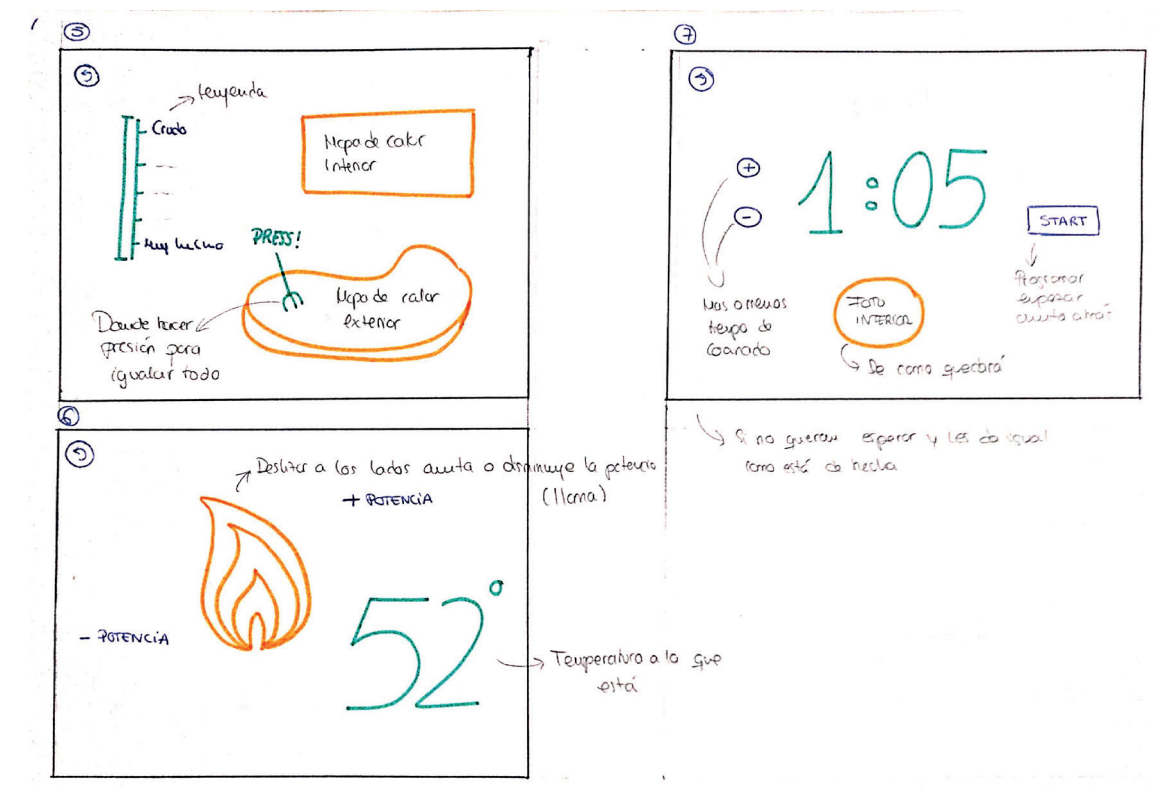 5
leyenda
Crudo
Muy hecho
Mapa de calor
Interior
PRESS!
Mapa de calor
exterior
Donde hacer
presión para
igualar todo
6
Deslizar a los lados aumta o disminuye la potencia
(llama)
+ POTENCIA
- POTENCIA
52°
Temperatura a la que
está
7
+
-
1:05
START
Mas o menos
tiempo de
cocinado
FOTO
INTERIOR
De como quedará
Programar
empezar
cuenta atrás
Si no quieren esperar y les da igual
como está de hecha